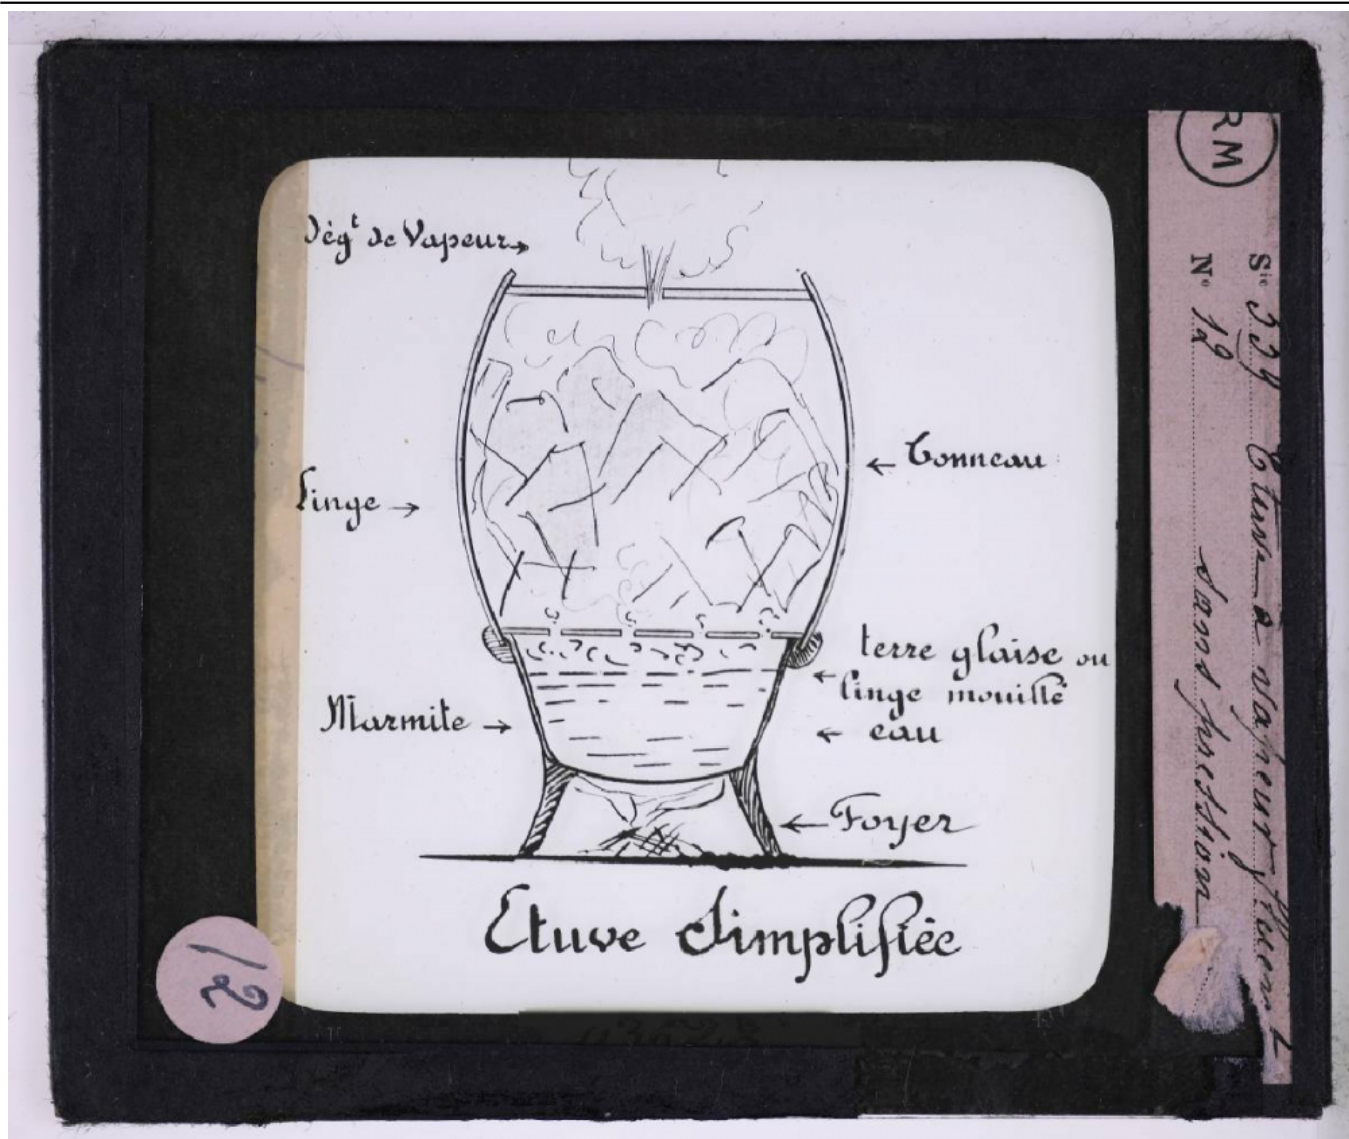 Dégt de Vapeur
Linge
Tonneau
terre glaise ou
linge mouillé
Marmite
eau
Foyer
Etuve Simplifiée
12
RM
Sie 339 Etuve à vapeur fluent
No 12 sans pression